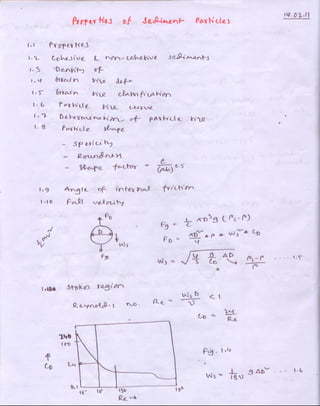 10.02.11
Properties of Sediment Particles
1.1 Properties
1.2. Cohesive & non-cohesive sediments
1.3 Density of
1.4 Grain size defn
1.5 Grain size classification
1.6 Particle size curve
1.7 Determination of particle size
1.8 Particle shape
- Sphericity
- Roundness
- Shape factor = c / (ab)^0.5
1.9 Angle of internal friction
1.10 Fall velocity
FD
D
Ws
Fg
Fg = πD³g (ρs-ρ)
FD = πD² / 4 * ρ * Ws² * CD
Ws = √ 4/3 g/CD ΔD
ρs-ρ / ρ ... 1.5
Stokes region
Reynold's no. Re = WsD / υ < 1
CD = 24 / Re
240
100
CD
2.4
0.1
Re →
Fig. 1.4
Ws = 1/18υ gΔD² ... 1.6